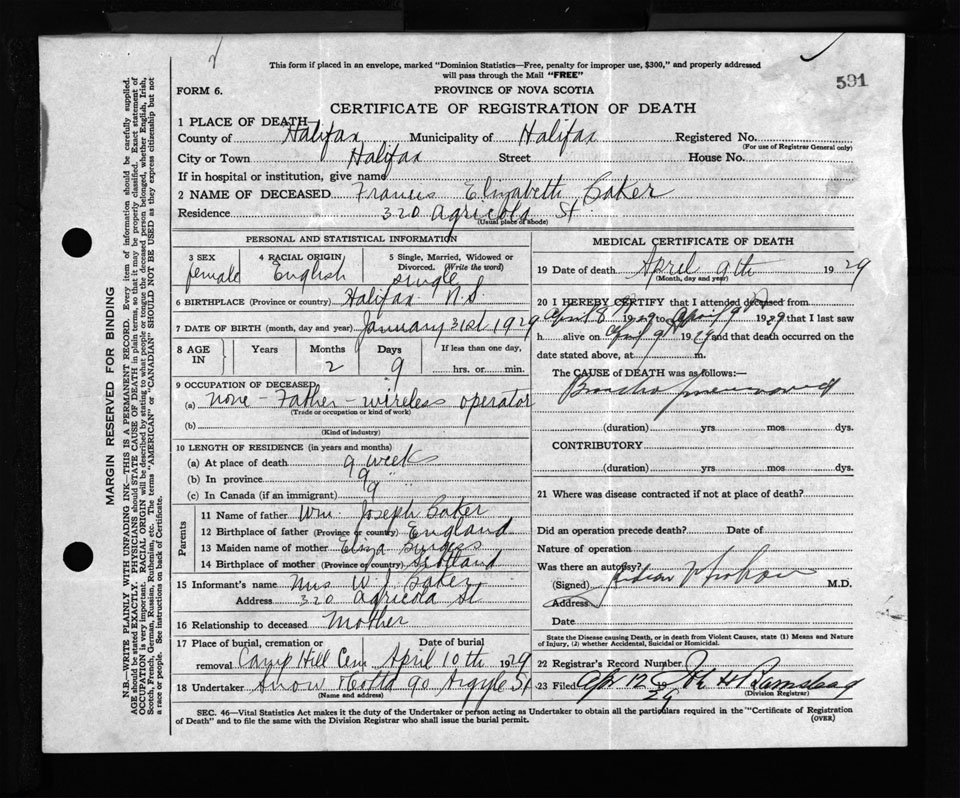 This form if placed in an envelope, marked "Dominion Statistics—Free, penalty for improper use, $300," and properly addressed
will pass through the Mail "FREE"
591
FORM 6.
PROVINCE OF NOVA SCOTIA
CERTIFICATE OF REGISTRATION OF DEATH
1 PLACE OF DEATH
County of Halifax Municipality of Halifax Registered No.
(For use of Registrar General only)
City or Town Halifax Street House No.
If in hospital or institution, give name
2 NAME OF DECEASED Francis Elizabeth Baker
Residence 320 Agricola St.
(Usual place of abode)
PERSONAL AND STATISTICAL INFORMATION
3 SEX female
4 RACIAL ORIGIN English
5 Single, Married, Widowed or Divorced. (Write the word) single
6 BIRTHPLACE (Province or country) Halifax N.S.
7 DATE OF BIRTH (month, day and year) January 31st 1929
8 AGE IN Years Months 2 Days 9 If less than one day, hrs. or min.
9 OCCUPATION OF DECEASED
(a) none - Father - wireless operator
(Trade or occupation or kind of work)
(b)
(Kind of industry)
10 LENGTH OF RESIDENCE (in years and months)
(a) At place of death 9 weeks
(b) In province 9 "
(c) In Canada (if an immigrant) 9
Parents
11 Name of father Wm. Joseph Baker
12 Birthplace of father (Province or country) England
13 Maiden name of mother Eliza Burgess
14 Birthplace of mother (Province or country) Scotland
15 Informant's name Mrs W. J. Baker
Address 320 Agricola St
16 Relationship to deceased Mother
17 Place of burial, cremation or removal Camp Hill Cem Date of burial April 10th 1929
18 Undertaker Snow 90 Argyle St
(Name and address)
MEDICAL CERTIFICATE OF DEATH
19 Date of death April 9th 1929
(Month, day and year)
20 I HEREBY CERTIFY that I attended deceased from
April 8 1929 to April 9 1929 that I last saw
h alive on April 9 1929 and that death occurred on the
date stated above, at m.
The CAUSE of DEATH was as follows:—
Broncho pneumonia
(duration) yrs mos dys.
CONTRIBUTORY
(duration) yrs mos dys.
21 Where was disease contracted if not at place of death?
Did an operation precede death? Date of
Nature of operation
Was there an autopsy?
(Signed) M.D.
Address
Date
State the Disease causing Death, or in death from Violent Causes, state (1) Means and Nature
of Injury, (2) whether Accidental, Suicidal or Homicidal.
22 Registrar's Record Number
23 Filed Apr 12 1929
(Division Registrar)
SEC. 46—Vital Statistics Act makes it the duty of the Undertaker or person acting as Undertaker to obtain all the particulars required in the "Certificate of Registration
of Death" and to file the same with the Division Registrar who shall issue the burial permit.
(OVER)
MARGIN RESERVED FOR BINDING
N.B.—WRITE PLAINLY WITH UNFADING INK—THIS IS A PERMANENT RECORD. Every item of information should be carefully supplied.
AGE should be stated EXACTLY. PHYSICIANS should STATE CAUSE OF DEATH in plain terms, so that it may be properly classified. Exact statement of
OCCUPATION is very important. RACIAL ORIGIN will be described by stating to what people or tongue the deceased person belonged, whether English, Irish,
Scotch, French, German, Russian, Ruthenian, etc. The terms "AMERICAN" or "CANADIAN" SHOULD NOT BE USED as they express citizenship but not
a race or people. See instructions on back of Certificate.